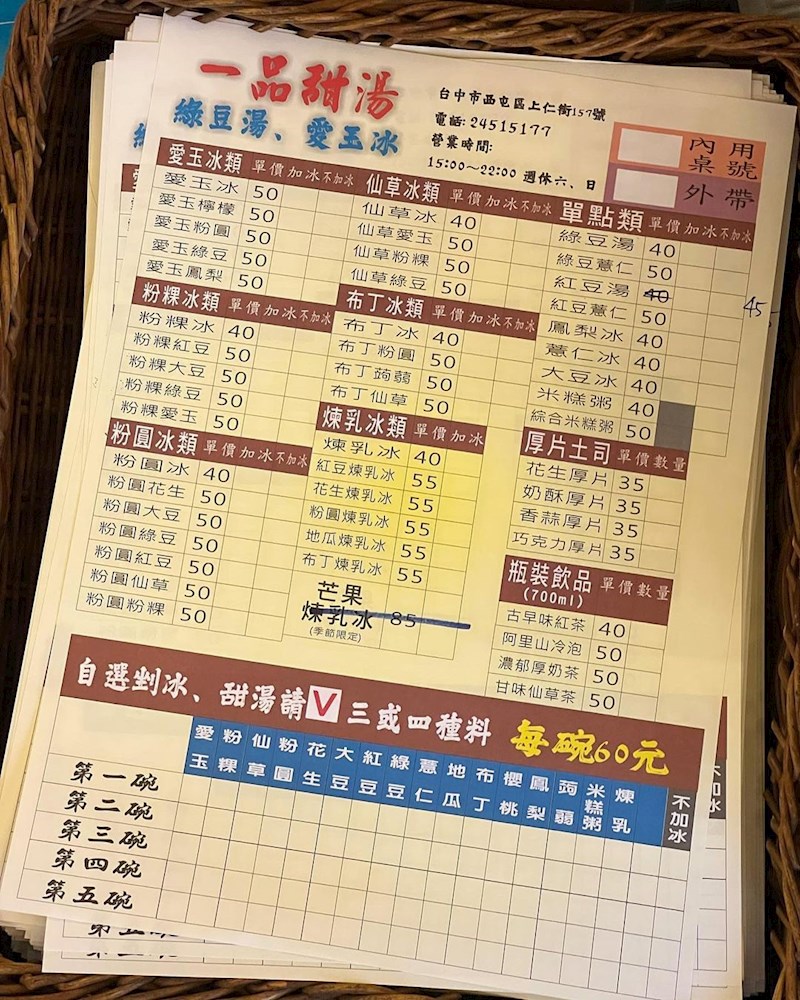 一品甜湯
綠豆湯、愛玉冰
台中市西屯區上仁街157號
電話: 24515177
營業時間:
15:00～22:00 週休六、日
內用
桌號
外帶
愛玉冰類 單價 加冰 不加冰
愛玉冰 50
愛玉檸檬 50
愛玉粉圓 50
愛玉綠豆 50
愛玉鳳梨 50
仙草冰類 單價 加冰 不加冰
仙草冰 40
仙草愛玉 50
仙草粉粿 50
仙草綠豆 50
單點類 單價 加冰 不加冰
綠豆湯 40
綠豆薏仁 50
紅豆湯 40 45
紅豆薏仁 50
鳳梨冰 40
薏仁冰 40
大豆冰 40
米糕粥 40
綜合米糕粥 50
粉粿冰類 單價 加冰 不加冰
粉粿冰 40
粉粿紅豆 50
粉粿大豆 50
粉粿綠豆 50
粉粿愛玉 50
布丁冰類 單價 加冰 不加冰
布丁冰 40
布丁粉圓 50
布丁蒟蒻 50
布丁仙草 50
粉圓冰類 單價 加冰 不加冰
粉圓冰 40
粉圓花生 50
粉圓大豆 50
粉圓綠豆 50
粉圓紅豆 50
粉圓仙草 50
粉圓粉粿 50
煉乳冰類 單價 加冰
煉乳冰 40
紅豆煉乳冰 55
花生煉乳冰 55
粉圓煉乳冰 55
地瓜煉乳冰 55
布丁煉乳冰 55
芒果
煉乳冰 85
(季節限定)
厚片土司 單價 數量
花生厚片 35
奶酥厚片 35
香蒜厚片 35
巧克力厚片 35
瓶裝飲品 單價 數量
(700ml)
古早味紅茶 40
阿里山冷泡 50
濃郁厚奶茶 50
甘味仙草茶 50
自選剉冰、甜湯請V三或四種料 每碗60元
愛玉 粉粿 仙草 粉圓 花生 大豆 紅豆 綠豆 薏仁 地瓜 布丁 櫻桃 鳳梨 蒟蒻 米糕粥 煉乳 不加冰
第一碗
第二碗
第三碗
第四碗
第五碗